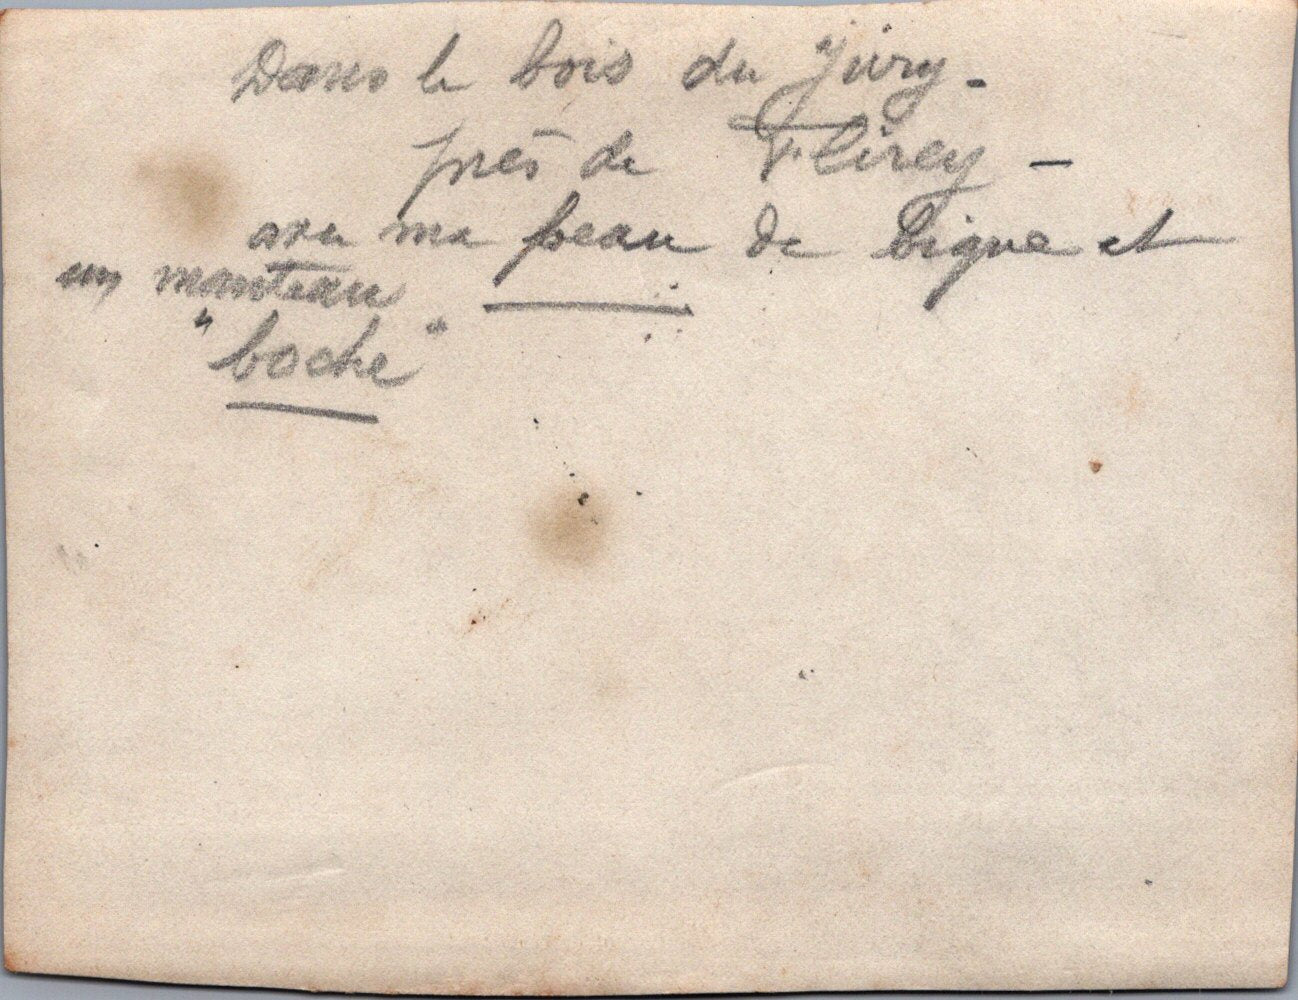 Dans le bois du Jury -
près de Flirey -
avec ma peau de bique et
un manteau
"boche"